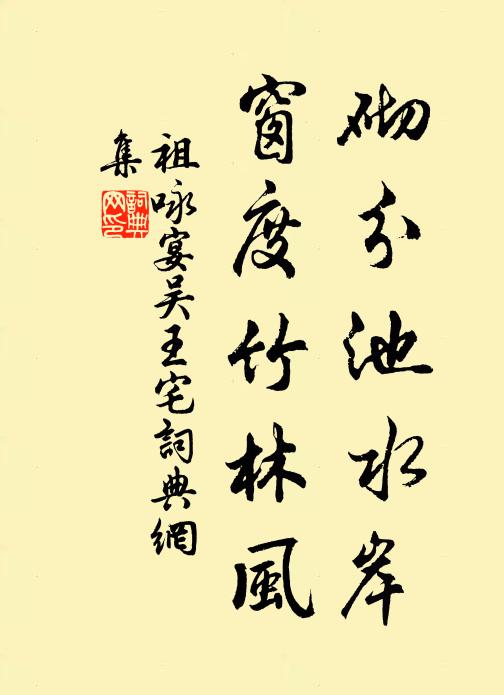 砌分池水岸
窗度竹林風
祖咏宴吴王宅詞典網
集
詞典网印